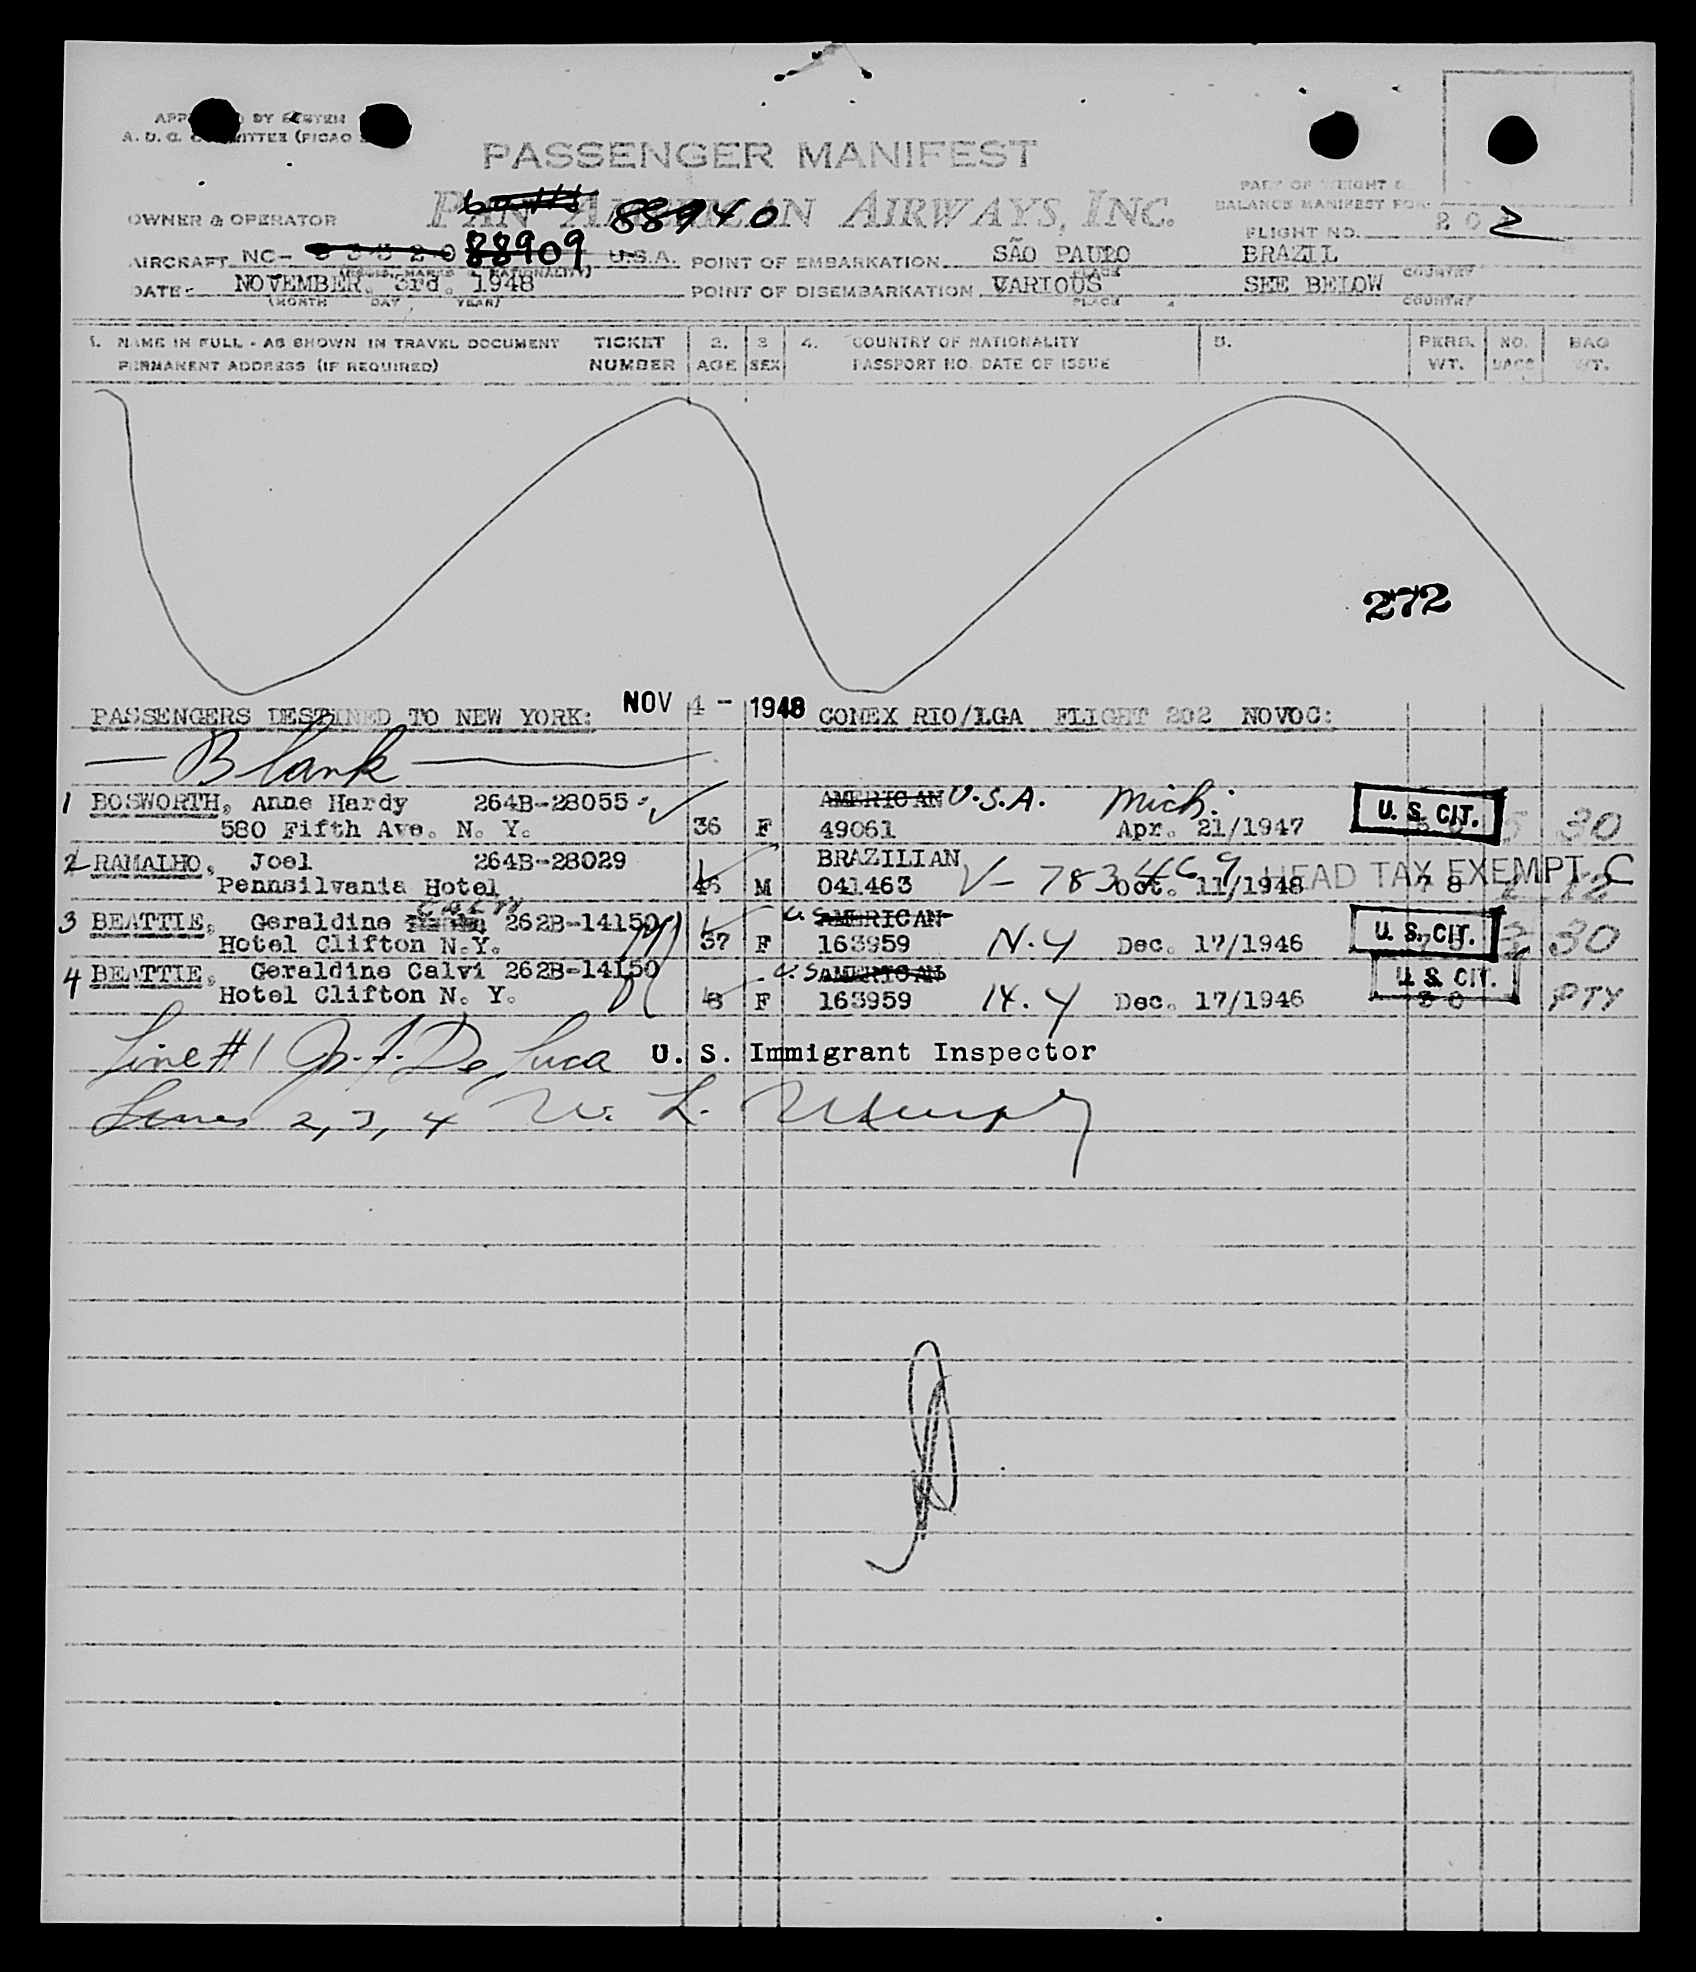 PASSENGER MANIFEST
PAN AMERICAN AIRWAYS, INC.
88940
OWNER & OPERATOR
PART OF WEIGHT &
BALANCE MANIFEST FOR
FLIGHT NO. 202
AIRCRAFT NC- 88909 U.S.A. POINT OF EMBARKATION SÃO PAULO BRAZIL
PLACE COUNTRY
DATE NOVEMBER. 3rd. 1948 POINT OF DISEMBARKATION VARIOUS SEE BELOW
(MONTH DAY YEAR) PLACE COUNTRY
1. NAME IN FULL - AS SHOWN IN TRAVEL DOCUMENT TICKET 2. 3 4. COUNTRY OF NATIONALITY 5. PERS. NO. BAG
PERMANENT ADDRESS (IF REQUIRED) NUMBER AGE SEX PASSPORT NO. DATE OF ISSUE WT. BAGS WT.
272
PASSENGERS DESTINED TO NEW YORK: NOV 4 - 1948 CONEX RIO/LGA FLIGHT 202 NOVOC:
— Blank —
1 BOSWORTH, Anne Hardy 264B-28055 AMERICAN U.S.A. Mich. U. S. CIT.
580 Fifth Ave. N. Y. 36 F 49061 Apr. 21/1947 30
2 RAMALHO, Joel 264B-28029 BRAZILIAN V- 783469 HEAD TAX EXEMPT C
Pennsilvania Hotel 46 M 041463 Oct. 11/1948 78 12
3 BEATTIE, Geraldine 262B-14150 U.S. AMERICAN U. S. CIT.
Hotel Clifton N.Y. 37 F 163959 N.Y Dec. 17/1946 30
4 BEATTIE, Geraldine Calvi 262B-14150 U.S. AMERICAN U. S. CIT.
Hotel Clifton N. Y. 8 F 163959 N.Y Dec. 17/1946 30 PTY
Line #1 J. F. De Luca U. S. Immigrant Inspector
Lines 2, 3, 4 W. L. Murphy